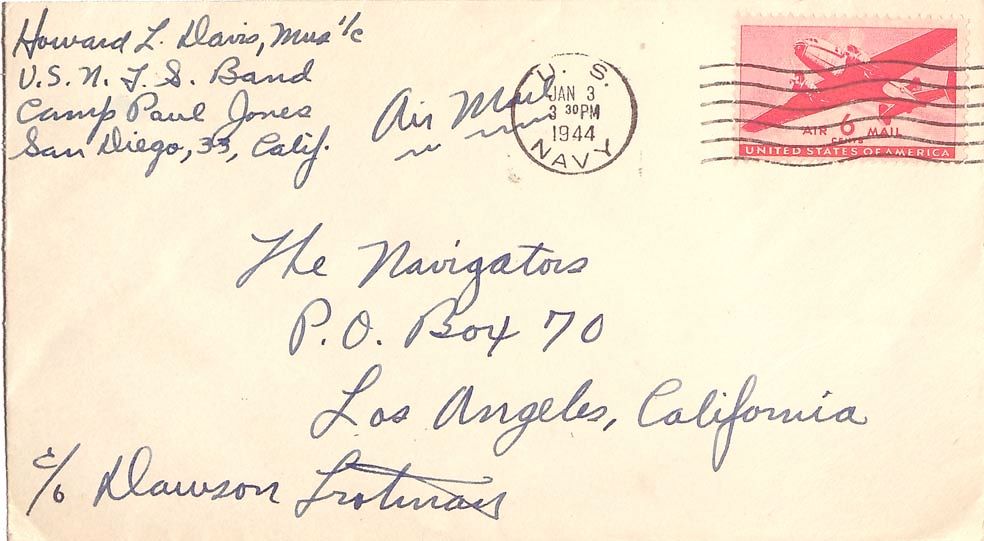 Howard L. Davis, Mus 1/c
U.S.N.T.S. Band
Camp Paul Jones
San Diego, 33, Calif.
Air Mail
U. S.
JAN 3
3 30 PM
1944
NAVY
AIR 6 MAIL
CENTS
UNITED STATES OF AMERICA
The Navigators
P.O. Box 70
Los Angeles, California
c/o Dawson Trotman